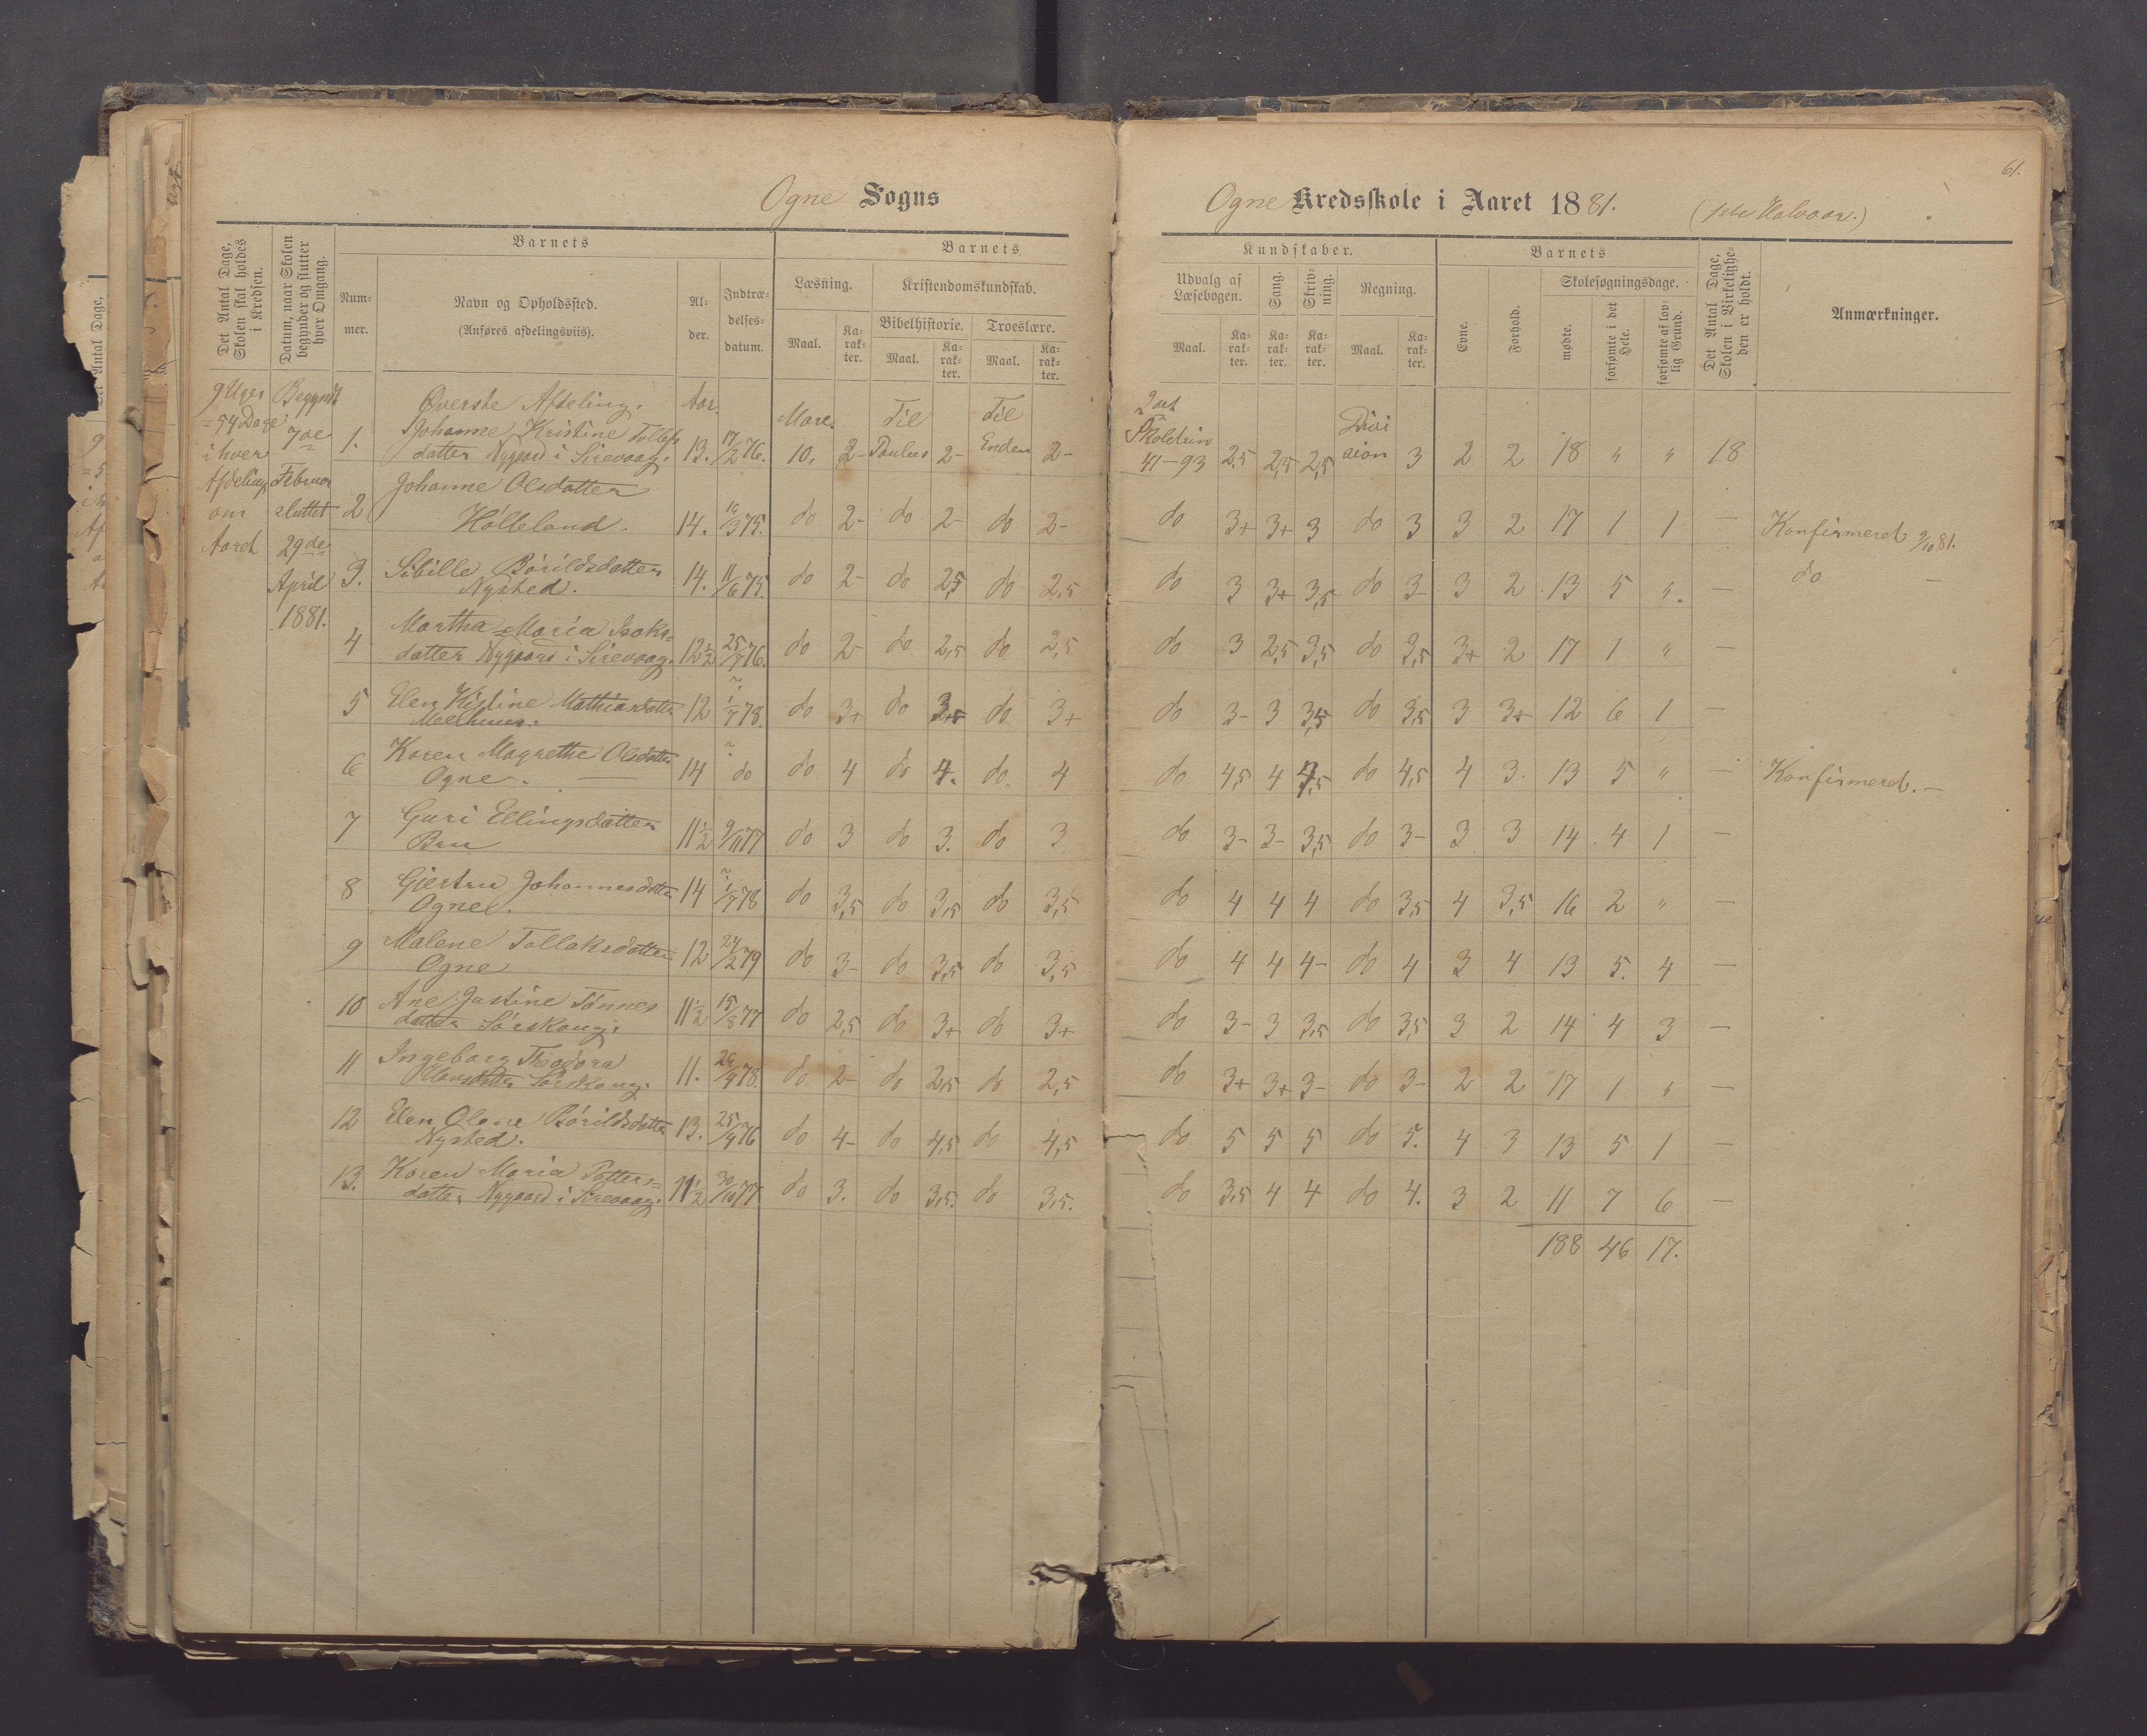 61.
Ogne Sogns
Ogne Kredsskole i Aaret 1881. (1ste Halvaar.)
Det Antal Dage, Skolen skal holdes i Kredsen.
Datum, naar Skolen begynder og slutter hver Omgang.
Barnets
Num-mer.
Navn og Opholdssted.
(Anføres afdelingsviis).
Al-der.
Indtræ-delses-datum.
Barnets
Læsning.
Maal.
Ka-rak-ter.
Kristendomskundskab.
Bibelhistorie.
Maal.
Ka-rak-ter.
Troeslære.
Maal.
Ka-rak-ter.
Kundskaber.
Udvalg af Læsebogen.
Maal.
Ka-rak-ter.
Sang.
Ka-rak-ter.
Skriv-ning.
Ka-rak-ter.
Regning.
Maal.
Ka-rak-ter.
Barnets
Evne.
Forhold.
Skolesøgningsdage.
mødte.
forsømte i det Hele.
forsømte af lov-lig Grund.
Det Antal Dage, Skolen i Virkelighe-den er holdt.
Anmærkninger.
9 Uger
= 54 Dage
i hver
Afdeling
om
Aaret
Begyndt
7de
Februar
sluttet
29de
April
1881.
Øverste Afdeling. Aar.
1. Johanne Kristine Tollefs
datter Nygaard i Sirevaag. 13. 17/2 76. Mare. 10. 2- Til Paulus 2- Til Enden 2- 2det Skoletrin 41-93 2,5 2,5 2,5 Divi sion 3 2 2 18 " " 18
2 Johanne Olsdatter
Holleland. 14. 16/3 75. do 2- do 2- do 2- do 3+ 3+ 3 do 3 3 2 17 1 1 — Konfirmeret 9/10 81.
3. Sibille Bårildsdatter
Nysted. 14. 11/6 75. do 2- do 2,5 do 2,5 do 3 3+ 3,5 do 3- 3 2 13 5 ". — do —
4 Martha Maria Isaks=
datter Nygaard i Sirevaag. 12½ 25/7 76. do 2- do 2,5 do 2,5 do 3 2,5 3,5 do 3,5 3+ 2 17 1 " —
5 Elen Kistine Mathiasdatter
Meelhuus. 12 ? 1/7 78. do 3+ do 3+ do 3+ do 3- 3 3,5 do 3,5 3 3+ 12 6 1 —
6 Karen Magrethe Olsdatter
Ogne. — 14 ? do do 4 do 4. do. 4 do 4,5 4 4,5 do 4,5 4 3. 13 5 " — Konfirmeret. —
7 Guri Ellingsdatter
Bru 11½ 9/11 77 do 3 do 3. do 3 do 3- 3- 3,5 do 3- 3 3 14 4 1 —
8 Giertru Johannesdatter
Ogne. 14 ? 1/7 78 do 3,5 do 3,5 do 3,5 do 4 4 4 do 3,5 4 3,5 16 2 " —
9 Malene Tollaksdatter
Ogne 12 24/2 79 do 3- do 3,5 do 3,5 do 4 4 4- do 4 3 4 13 5. 4 —
10 Ane Justine Tønnes
datter Sørskoug. 11½ 15/8 77 do 2,5 do 3+ do 3+ do 3- 3 3,5 do 3,5 3 2 14 4 3 —
11 Ingeborg Theodora
Sørskoug. 11. do 2- do 2,5 do 2,5 do 3+ 3+ 3- do 3- 2 2 17 1 " —
12 Elen Olene Bårildsdatter
Nysted. 13. 25/9 76 do 4- do 4,5 do 4,5 do 5 5 5 do 5. 4 3 13 5 1 —
13. Karen Maria Petters=
datter Nygaard i Sirevaag. 11½ 30/10 77. do 3. do 3,5. do 3,5. do 3,5 4 4 do 4. 3 2 11 7 6 —
188 46 17.